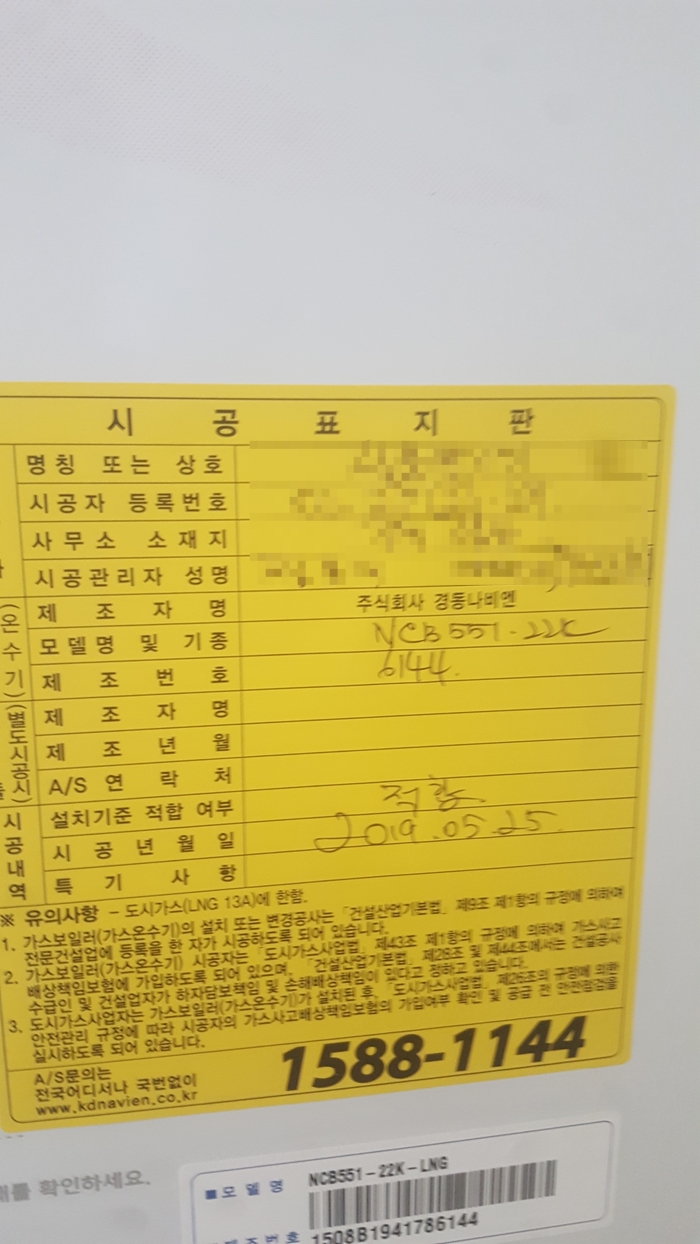 시 공 표 지 판
명칭 또는 상호
시공자 등록번호
사무소 소재지
시공관리자 성명
(온수기)
제 조 자 명 주식회사 경동나비엔
모델명 및 기종 NCB551-22K
제 조 번 호 6144.
(별도시공시)
제 조 자 명
제 조 년 월
A/S 연 락 처
시공내역
설치기준 적합 여부 적합
시 공 년 월 일 2019.05.25.
특 기 사 항
※ 유의사항 - 도시가스(LNG 13A)에 한함.
1. 가스보일러(가스온수기)의 설치 또는 변경공사는 「건설산업기본법」 제9조 제1항의 규정에 의하여
전문건설업에 등록을 한 자가 시공하도록 되어 있습니다.
2. 가스보일러(가스온수기) 시공자는 「도시가스사업법」 제43조 제1항의 규정에 의하여 가스사고
배상책임보험에 가입하도록 되어 있으며, 「건설산업기본법」 제28조 및 제44조에서는 건설공사
수급인 및 건설업자가 하자담보책임 및 손해배상책임이 있다고 정하고 있습니다.
3. 도시가스사업자는 가스보일러(가스온수기)가 설치된 후, 「도시가스사업법」 제26조의 규정에 의한
안전관리 규정에 따라 시공자의 가스사고배상책임보험의 가입여부 확인 및 공급 전 안전점검을
실시하도록 되어 있습니다.
A/S문의는
전국어디서나 국번없이
www.kdnavien.co.kr
1588-1144
확인하세요.
■모 델 명 NCB551-22K-LNG
제조번호 1508B1941786144